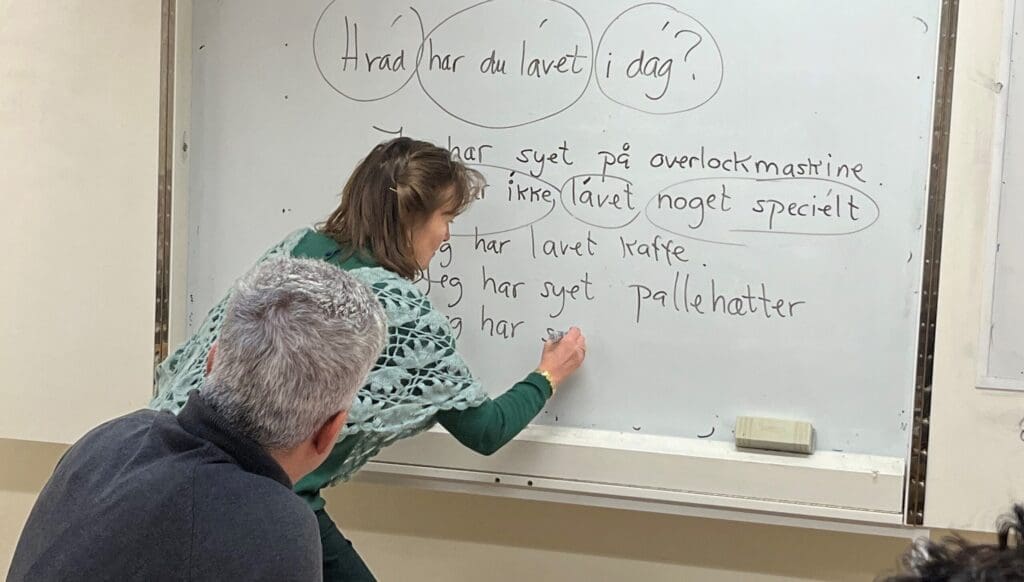 Hvád har du lávet i dág?
har syet på overlockmaskine.
íkke lávet noget speciélt
har lavet kaffe.
Jeg har syet pallehætter
har